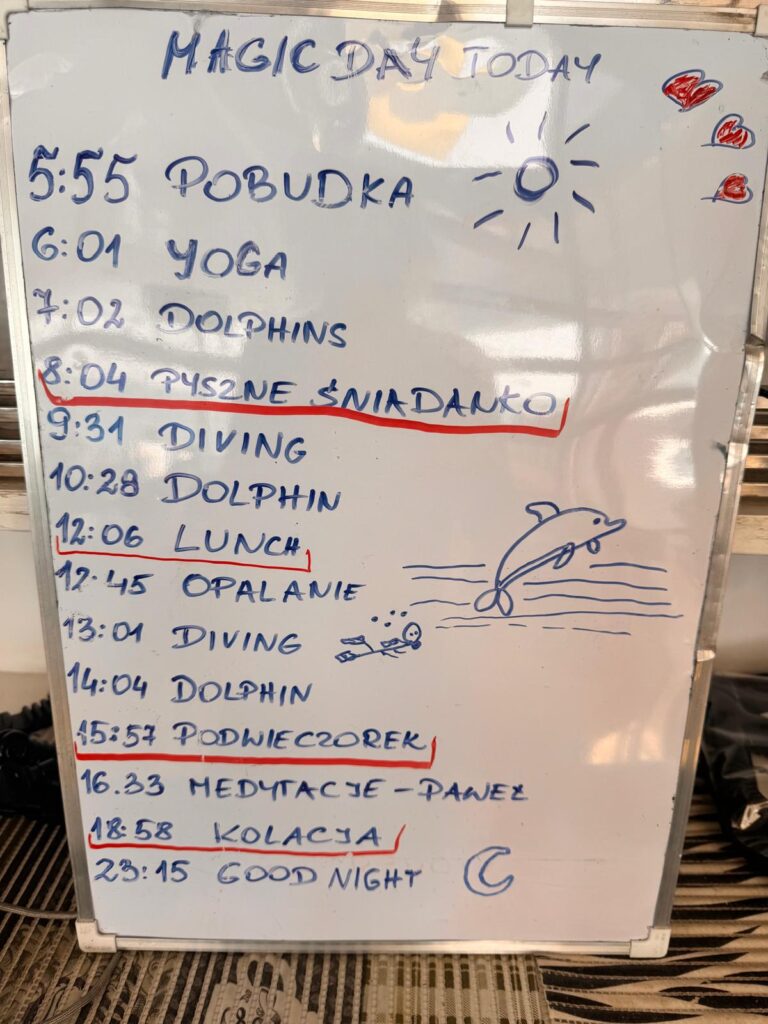 MAGIC DAY TODAY
5:55 POBUDKA
6:01 YOGA
7:02 DOLPHINS
8:04 PYSZNE ŚNIADANKO
9:31 DIVING
10:28 DOLPHIN
12:06 LUNCH
12:45 OPALANIE
13:01 DIVING
14:04 DOLPHIN
15:57 PODWIECZOREK
16.33 MEDYTACJE - PAWEŁ
18:58 KOLACJA
23:15 GOOD NIGHT